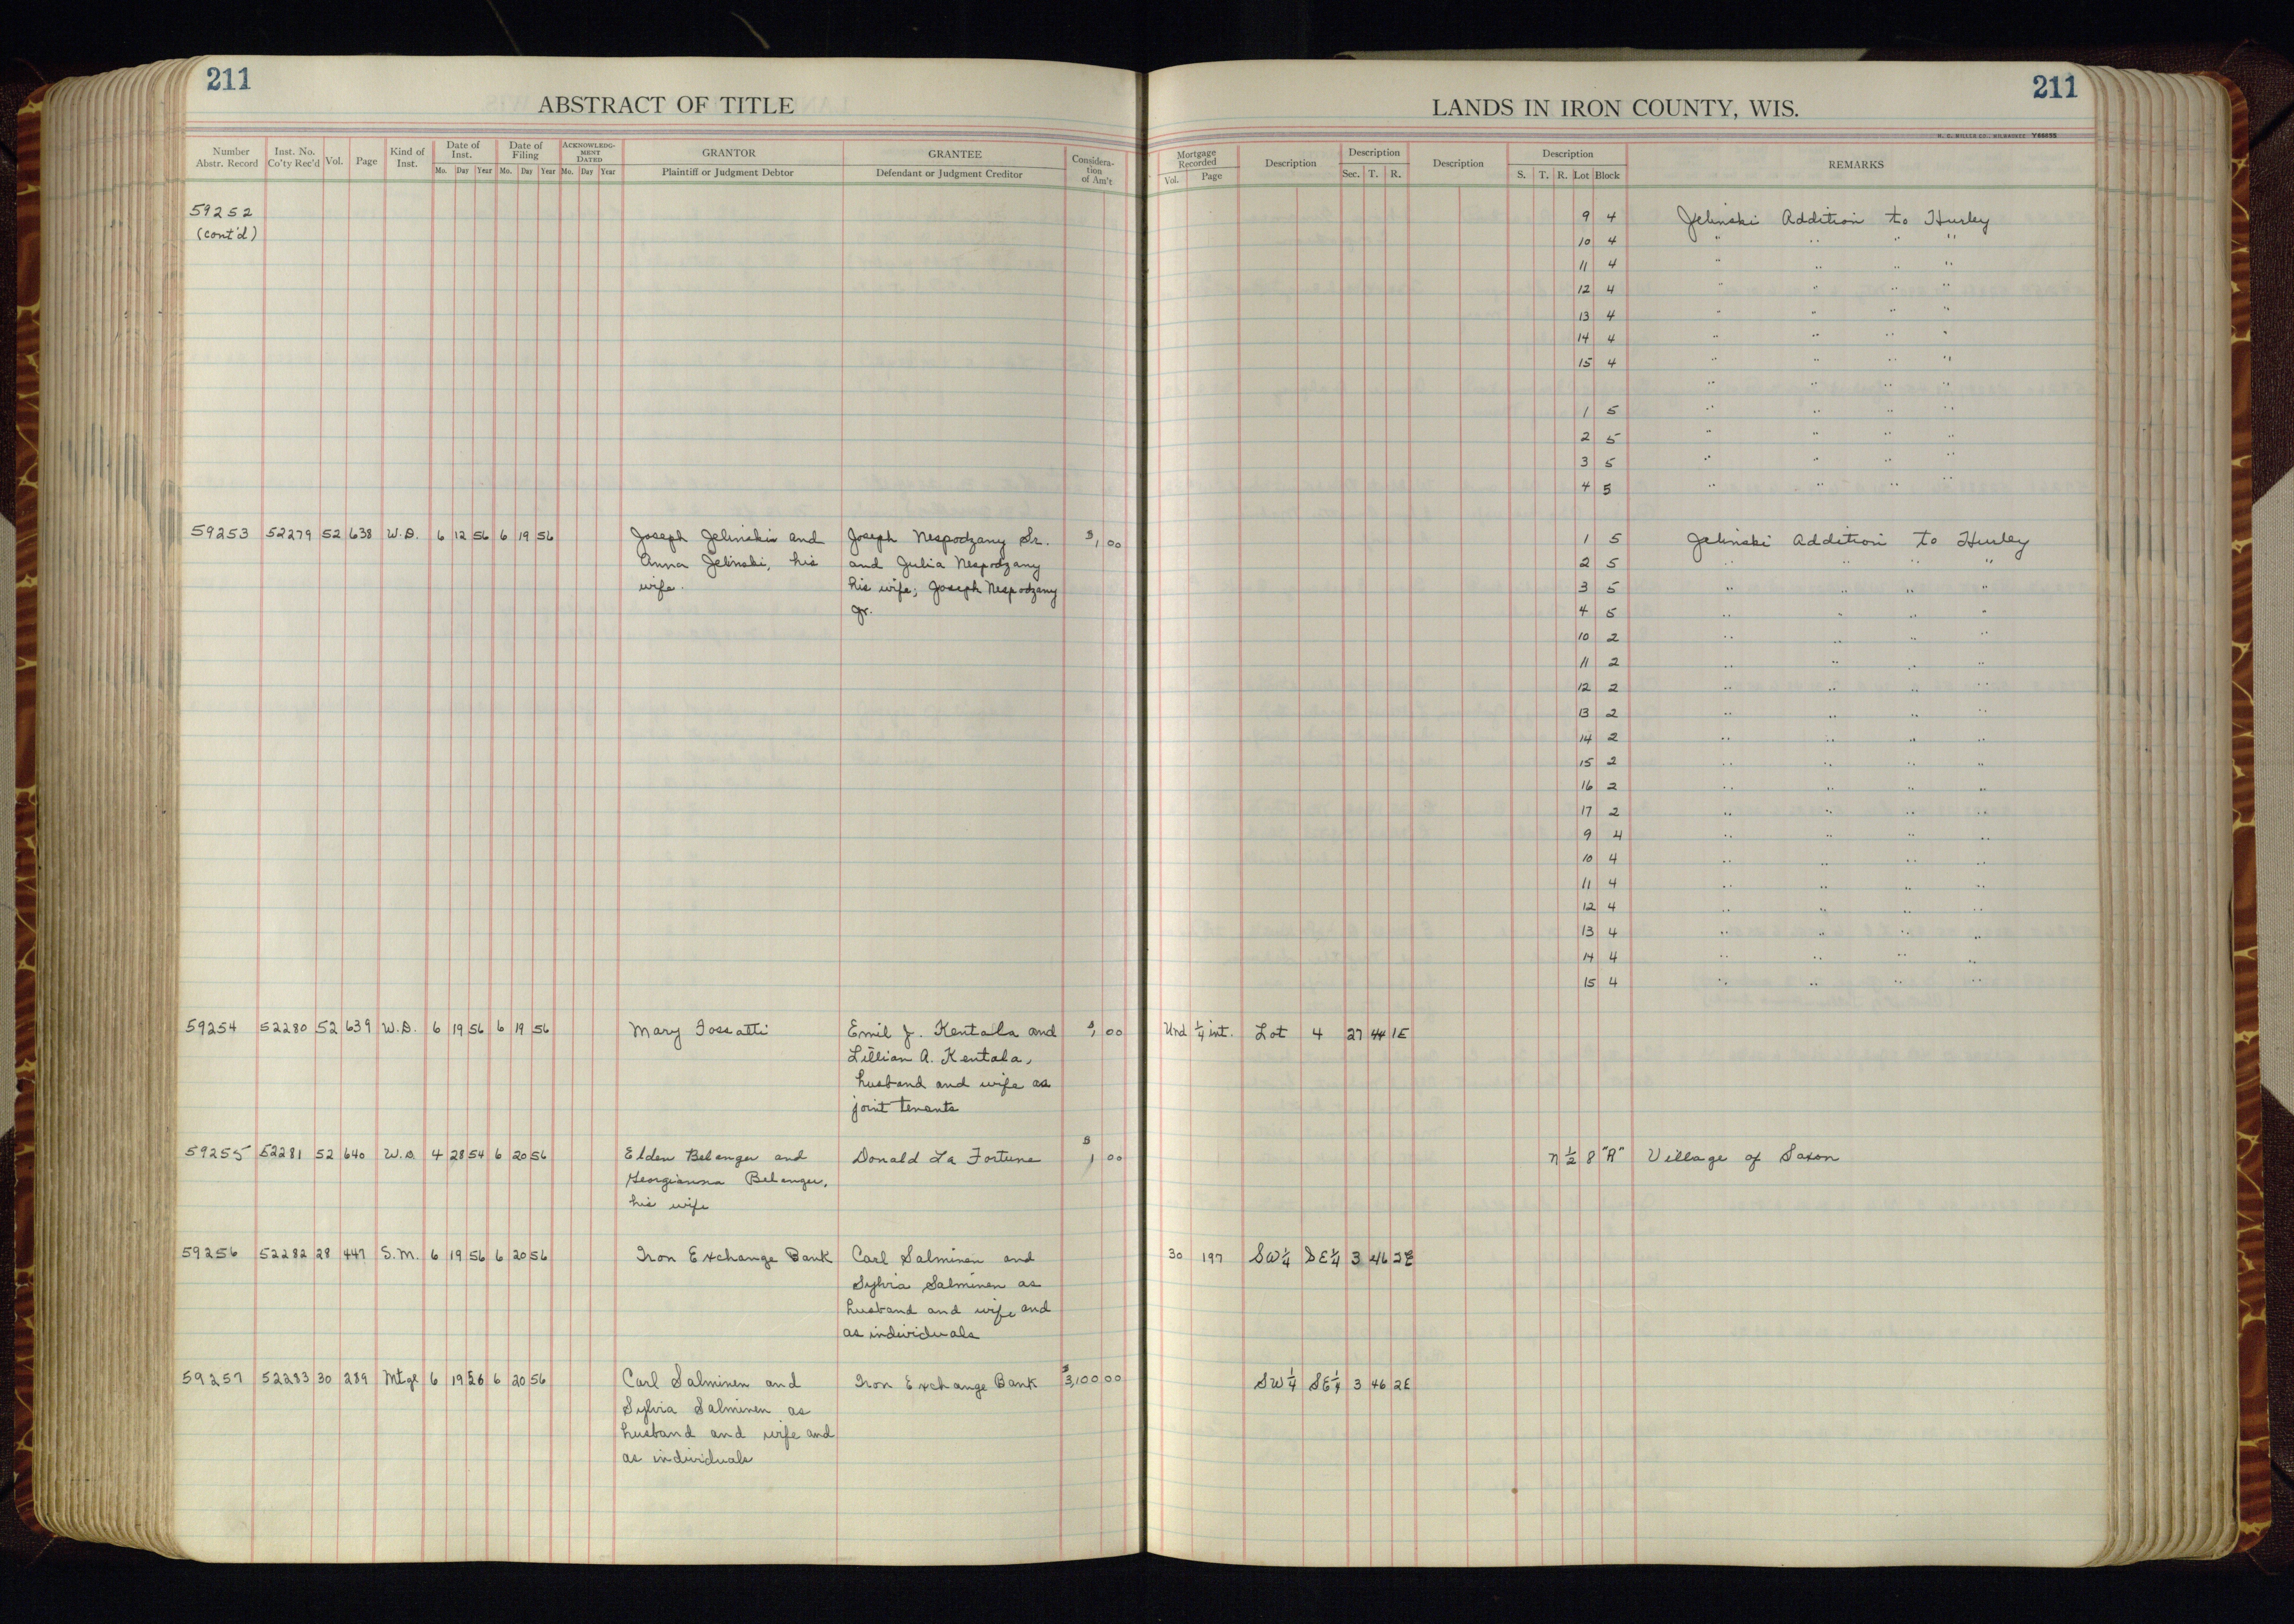 211
ABSTRACT OF TITLE
Number Abstr. Record Inst. No. Co'ty Rec'd Vol. Page Kind of Inst. Date of Inst. Mo. Day Year Date of Filing Mo. Day Year ACKNOWLEDGMENT DATED Mo. Day Year GRANTOR Plaintiff or Judgment Debtor GRANTEE Defendant or Judgment Creditor Consideration of Am't
59252
(cont'd)
59253 52279 52 638 W.D. 6 12 56 6 19 56 Joseph Jelinski and Joseph Nespodzany Sr. $1,00
Anna Jelinski, his and Julia Nespodzany
wife. his wife; Joseph Nespodzany
Jr.
59254 52280 52 639 W.D. 6 19 56 6 19 56 Mary Fossatti Emil J. Kentala and $1,00
Lillian A. Kentala,
husband and wife as
joint tenants
59255 52281 52 640 W.D. 4 28 54 6 20 56 Elden Belanger and Donald La Fortune $1 00
Georgianna Belanger,
his wife
59256 52282 28 447 S.M. 6 19 56 6 20 56 Iron Exchange Bank Carl Salminen and
Sylvia Salminen as
husband and wife and
as individuals
59257 52283 30 289 Mtge 6 19 56 6 20 56 Carl Salminen and Iron Exchange Bank $3,100 00
Sylvia Salminen as
husband and wife and
as individuals
211
LANDS IN IRON COUNTY, WIS.
H. C. MILLER CO. MILWAUKEE Y66655
Mortgage Recorded Vol. Page Description Description Sec. T. R. Description Description S. T. R. Lot Block REMARKS
9 4 Jelinski Addition to Hurley
10 4 " " " "
11 4 " " " "
12 4 " " " "
13 4 " " " "
14 4 " " " "
15 4 " " " "
" " " "
1 5 " " " "
2 5 " " " "
3 5 " " " "
4 5 " " " "
1 5 Jelinski Addition to Hurley
2 5 " " " "
3 5 " " " "
4 5 " " " "
10 2 " " " "
11 2 " " " "
12 2 " " " "
13 2 " " " "
14 2 " " " "
15 2 " " " "
16 2 " " " "
17 2 " " " "
9 4 " " " "
10 4 " " " "
11 4 " " " "
12 4 " " " "
13 4 " " " "
14 4 " " " "
15 4 " " " "
Und ¼ int. Lot 4 27 44 1E
n ½ 8 "A" Village of Saxon
30 197 SW¼ SE¼ 3 46 2E
SW¼ SE¼ 3 46 2E